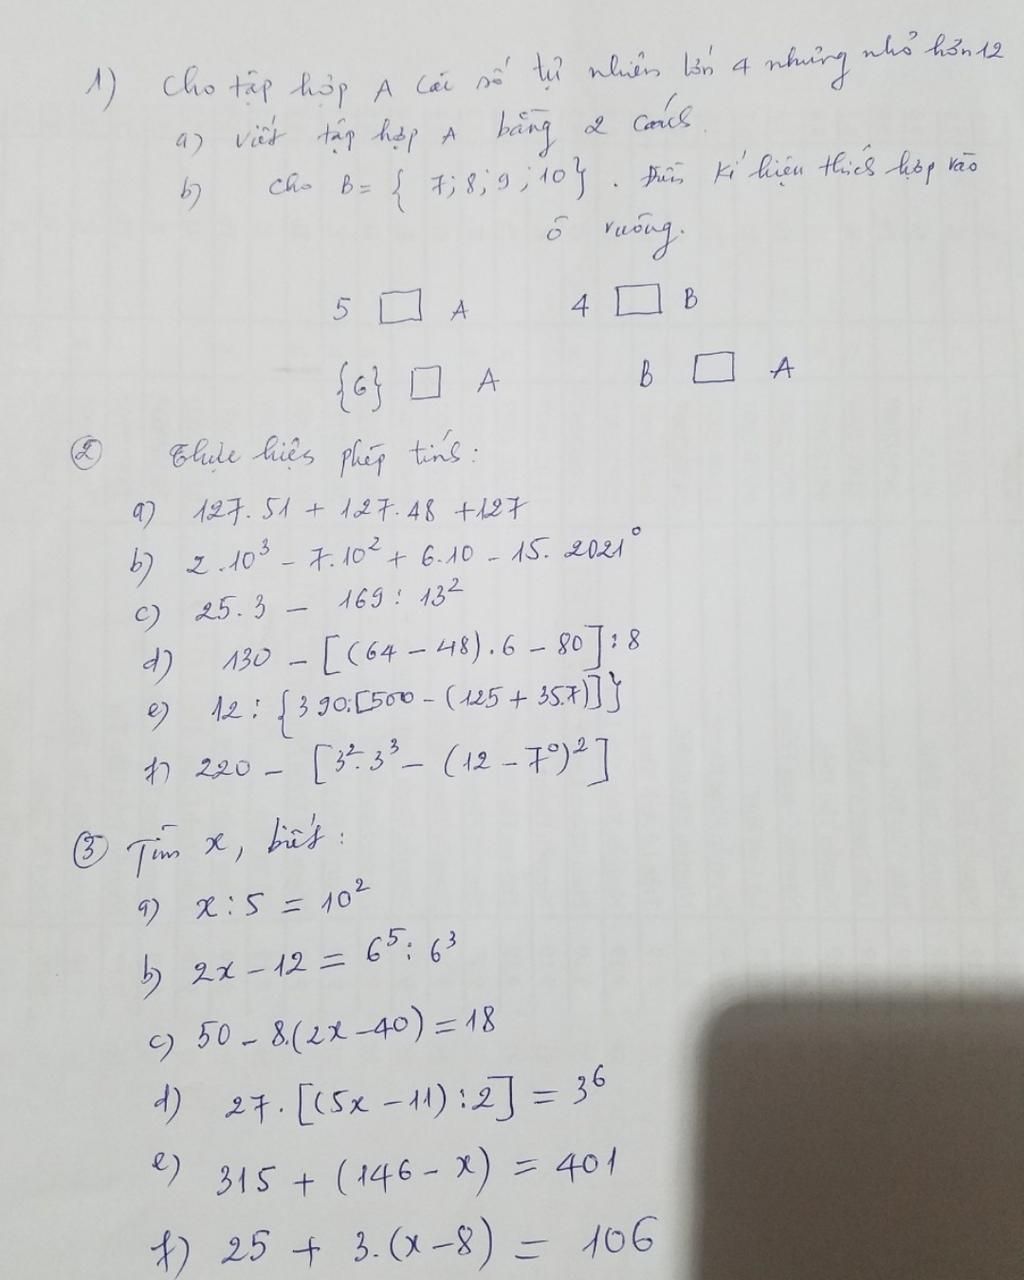 1) Cho tập hợp A các số tự nhiên lớn 4 nhưng nhỏ hơn 12
a) Viết tập hợp A bằng 2 cách.
b) Cho B = { 7; 8; 9; 10}. Điền kí hiệu thích hợp vào
ô vuông.
5 □ A 4 □ B
{6} □ A B □ A
② Thực hiện phép tính:
a) 127.51 + 127.48 + 127
b) 2.10³ - 7.10² + 6.10 - 15. 2021⁰
c) 25.3 - 169 : 13²
d) 130 - [(64 - 48).6 - 80] : 8
e) 12 : {390:[500 - (125 + 35.7)]}
f) 220 - [3².3³ - (12 - 7⁰)²]
③ Tìm x, biết:
a) x : 5 = 10²
b) 2x - 12 = 6⁵ : 6³
c) 50 - 8.(2x - 40) = 18
d) 27. [(5x - 11) : 2] = 3⁶
e) 315 + (146 - x) = 401
f) 25 + 3.(x - 8) = 106